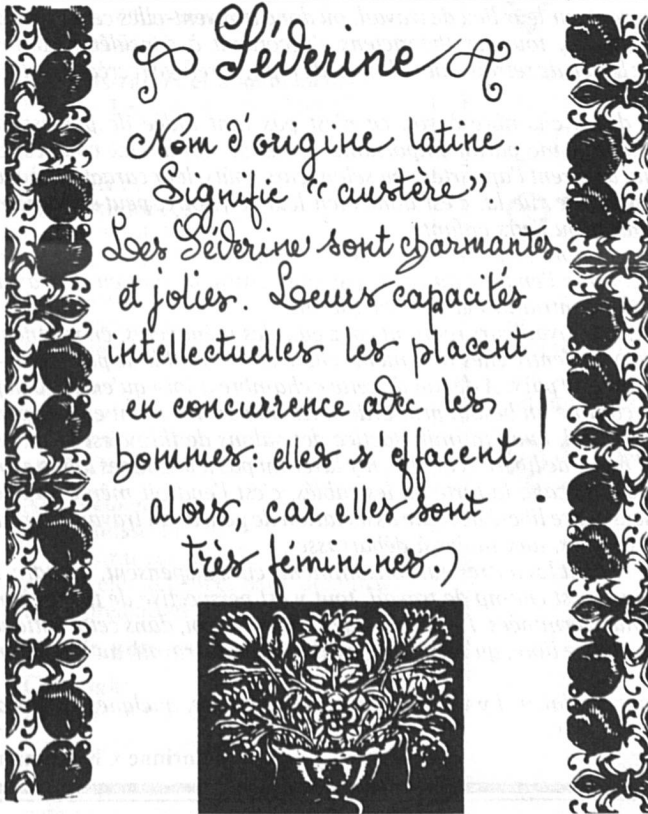 Séverine
Nom d'origine latine
Signifie “austère”
Les Séverine sont charmantes
et jolies. Leurs capacités
intellectuelles les placent
en concurrence avec les
hommes: elles s'effacent
alors, car elles sont !
très féminines